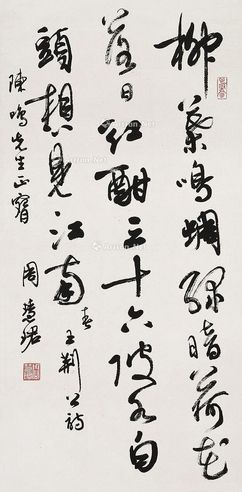 柳葉鳴蜩綠暗荷花
落日红酣三十六陂水白
頭想見江南 春 王荆公詩
陳鳴先生正 周慧珺